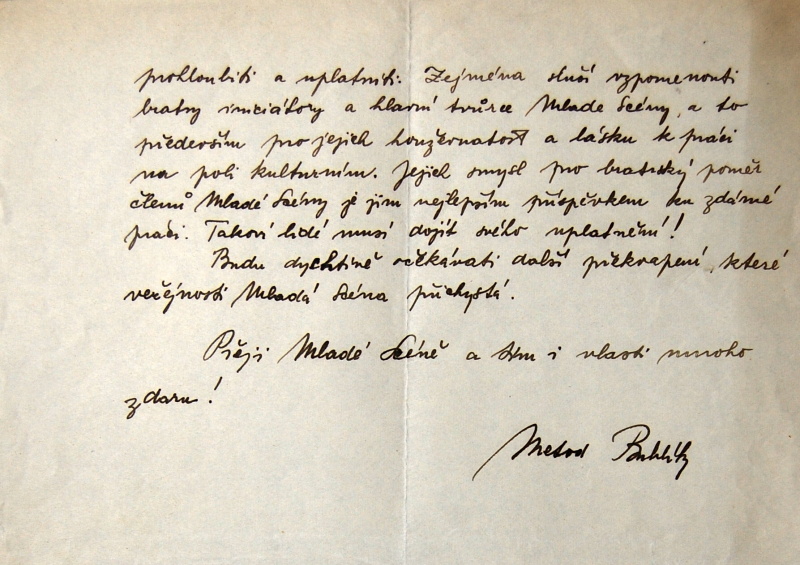 prohloubiti a uplatniti. Zejména sluší vzpomenouti
bratry iniciátory a hlavní tvůrce Mladé Scény, a to
především pro jejich houževnatost a lásku k práci
na poli kulturním. Jejich smysl pro bratrský poměr
členů Mladé Scény je jim nejlepším příspěvkem ku zdárné
práci. Takoví lidé musí dojít svého uplatnění!
Budu dychtivě očekávati další překvapení, které
veřejnosti Mladá Scéna přichystá.
Přeji Mladé Scéně a tím i vlasti mnoho
zdaru!
Metod